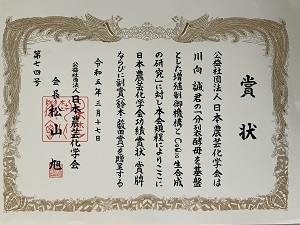 賞状
公益社団法人 日本農芸化学会は
川向 誠君の「分裂酵母を基盤
とした増殖制御機構とCoQの生合成
の研究」に対し本会規程によりここに
日本農芸化学会功績賞賞状 賞牌
ならびに副賞を贈呈する
令和五年三月十七日
公益社団法人
日本農芸化学会
会長 松山 旭
第七四号